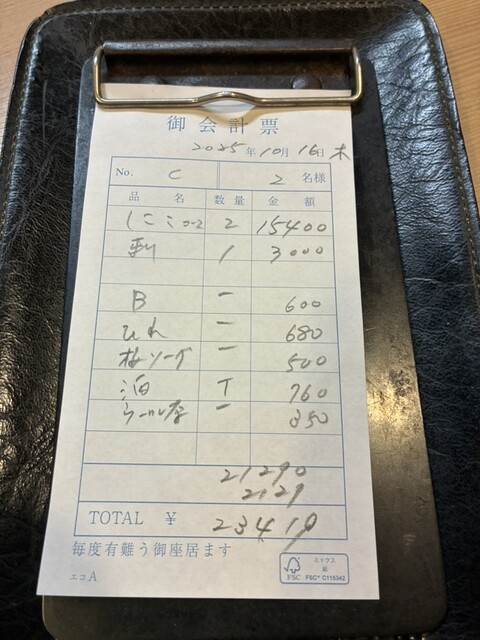 御会計票
2025年10月16日 木
No. C 2 名様
品名 数量 金額
2 15400
刺 1 3000
B 一 600
ひれ 一 680
梅ソーダ 一 500
泊 T 760
ウーロン茶 一 350
21290
2129
TOTAL ¥ 23419
毎度有難う御座居ます
エコA
ミックス
紙
FSC
FSC® C115342